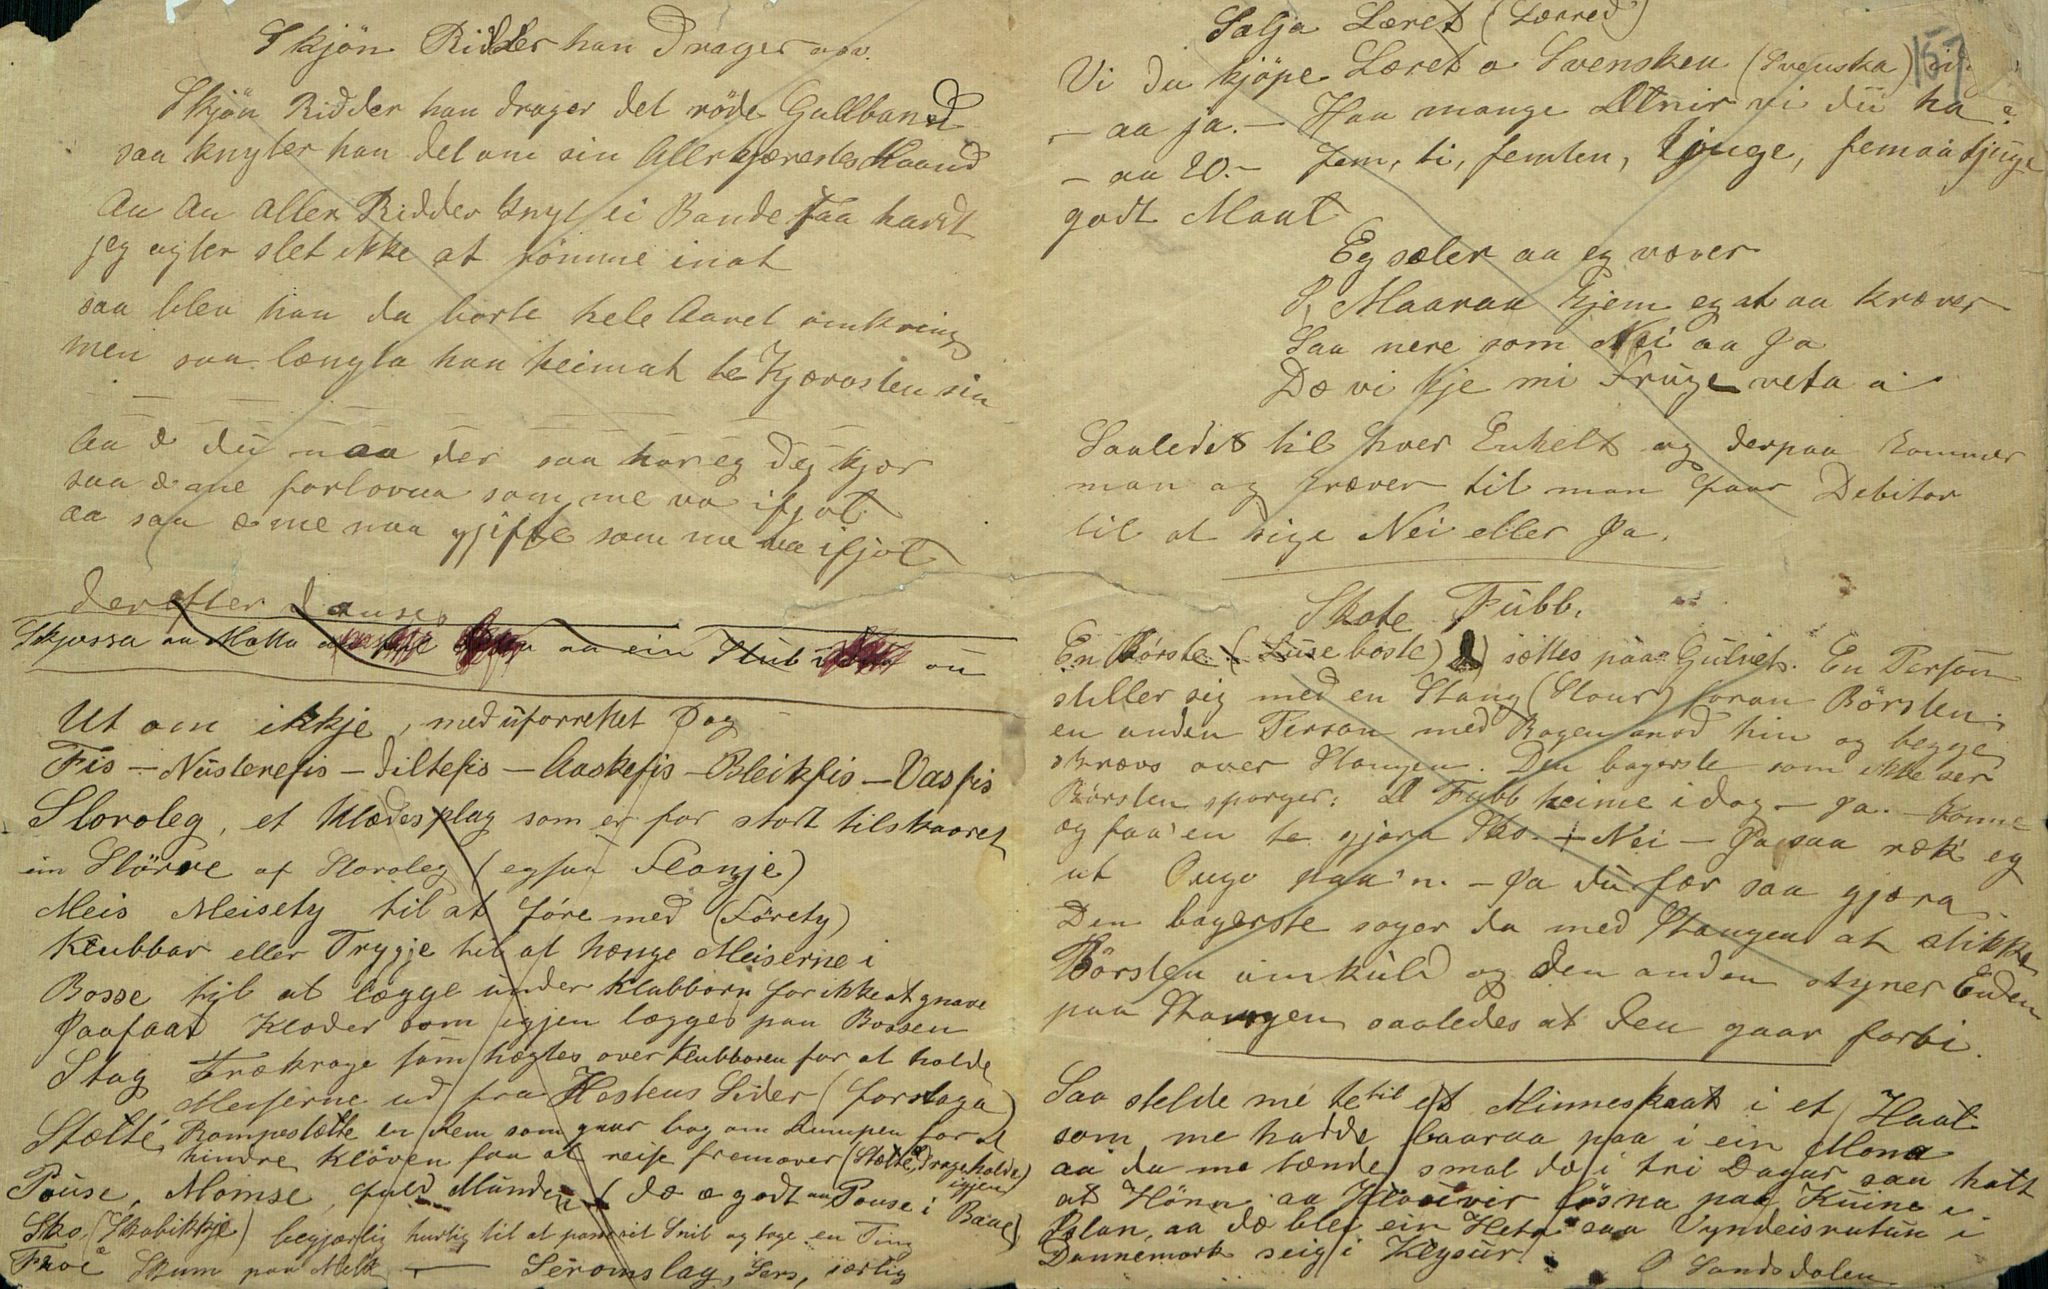 Skjön Ridder han drager
Skjön Ridder han drager det röde Gullband
saa knyter han det om sin Allerkjærestes Haand
Aa Aa Aller Ridder knyt ei Bande saa hardt
jeg agter slet ikke at römme inat
saa blev han da borte hele Aaret omkring
men saa længta han heimat te Kjærasten sin
Aa æ du naa der saa har eg deg kjær
saa æ me forlovaa som me va ifjol
aa saa æ me naa gjifte som me va ifjol
derefter danse
Skjessa aa Matta aa ein Stub
Ut om ikkje, med uforrettet Sag
Fis – Nüsterefis – Diltefis – Aaskefis – Bleikfis – Vasfis
Sloroleg, et Klædesplag som er for stort tilskaaret
ein Slörve af Sloroleg (ogsaa Flonje)
Meis Meisety til at före med (Förety)
Klubbar eller Trygje til at hænge Meiserne i
Bosse tyb at lægge under Klubborn for ikke at gnave
Paafaat Klæder som igjen lægges paa Bossen
Stag Trækrage som hægtes over Klubboren for at holde
Meiserne ud fra Hestens Sider (forstaga)
Stætte, Rompestætte en Rem som gaar bag om Rumpen for at
hindre Klöven fra at reise fremover (Stætte, drage holde)
igjen
Pouse, Momse, fuld Munden (dæ æ godt aa Pouse i Baae)
Sko (Skobikkje) begjærlig hurtig til at passe sit Snit og tage en Ting
Fraae Skum paa Melk — Seromslag, Sers, særlig
157
Salja Læret (Lærred)
Vi du kjöpe Læret o Svensken (Svenska) i
– aa ja. – Haa mange Alnir vi dü ha?
– aa 20. – fem, ti, femten, tjuge, femaatjuge
godt Maal
Eg sæler aa eg væver
I Maaraa kjem eg at aa kræver
Saa nere som Nei aa Ja
Dæ vi kje mi Fruge veta a
Saaledes til hver Enkelt og derpaa kommer
man og kræver til man faar Debitor
til at sige Nei eller Ja.
Skote Fubb.
En Börste (Lüseboste) sættes paa Gülvet. En Person
stiller sig med en Stang (Staur) foran Börsten
en anden Person med Ragen mod hin og begge
skrævs over Stangen. Den bagerste som ikke ser
Börsten sporger: Æ Fubb heime idag – Ja. – Konne
eg faa'en te gjöra Sko. – Nei – Ja saa ræk' eg
ut Ougo paa'n. – Ja dü fær saa gjæra
Den bagerste söger da med Stangen at stikke
Börsten omkuld og den anden styrer Enden
paa Stangen saaledes at den gaar forbi.
Saa stelde me te til et Minneskaat i et Haat
som me hadde baaraa paa i ein Mona
aa da me tænde smal dæ i tri Dagar saa hatt
at Hönn aa Klouvir lösna paa Kuine i
Aslan, aa dæ blei ein Heta saa Vyndeisrutün i
Dannemark seig i Klysür.
O Sandsdalen